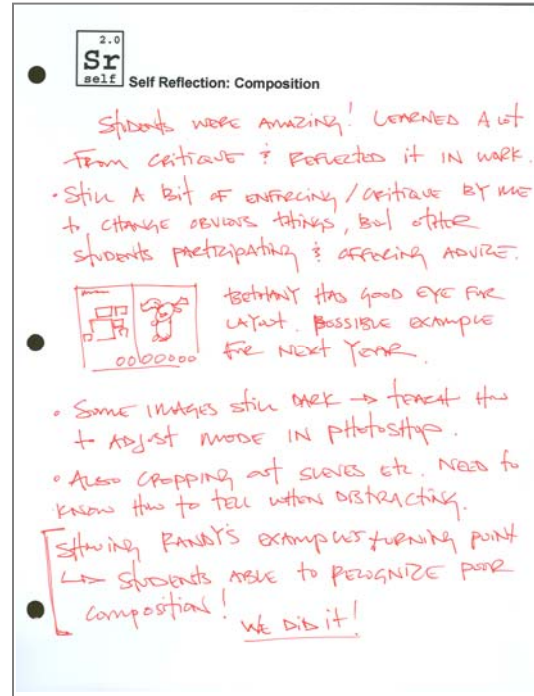 2.0
Sr
self
Self Reflection: Composition
STUDENTS WERE AMAZING! LEARNED A LOT
FROM CRITIQUE & REFLECTED IT IN WORK.
• STILL A BIT OF ENFORCING / CRITIQUE BY ME
TO CHANGE OBVIOUS THINGS, BUT OTHER
STUDENTS PARTICIPATING & OFFERING ADVIZE.
BETHANY HAS GOOD EYE FOR
LAYOUT. POSSIBLE EXAMPLE
FOR NEXT YEAR.
• SOME IMAGES STILL DARK → TEACH HOW
TO ADJUST MODE IN PHOTOSHOP.
• ALSO CROPPING OUT SLEEVES ETC. NEED TO
KNOW HOW TO TELL WHEN DISTRACTING.
SHOWING RANDY'S EXAMPLES TURNING POINT
↳ STUDENTS ABLE TO RECOGNIZE POOR
COMPOSITION!
WE DID IT!